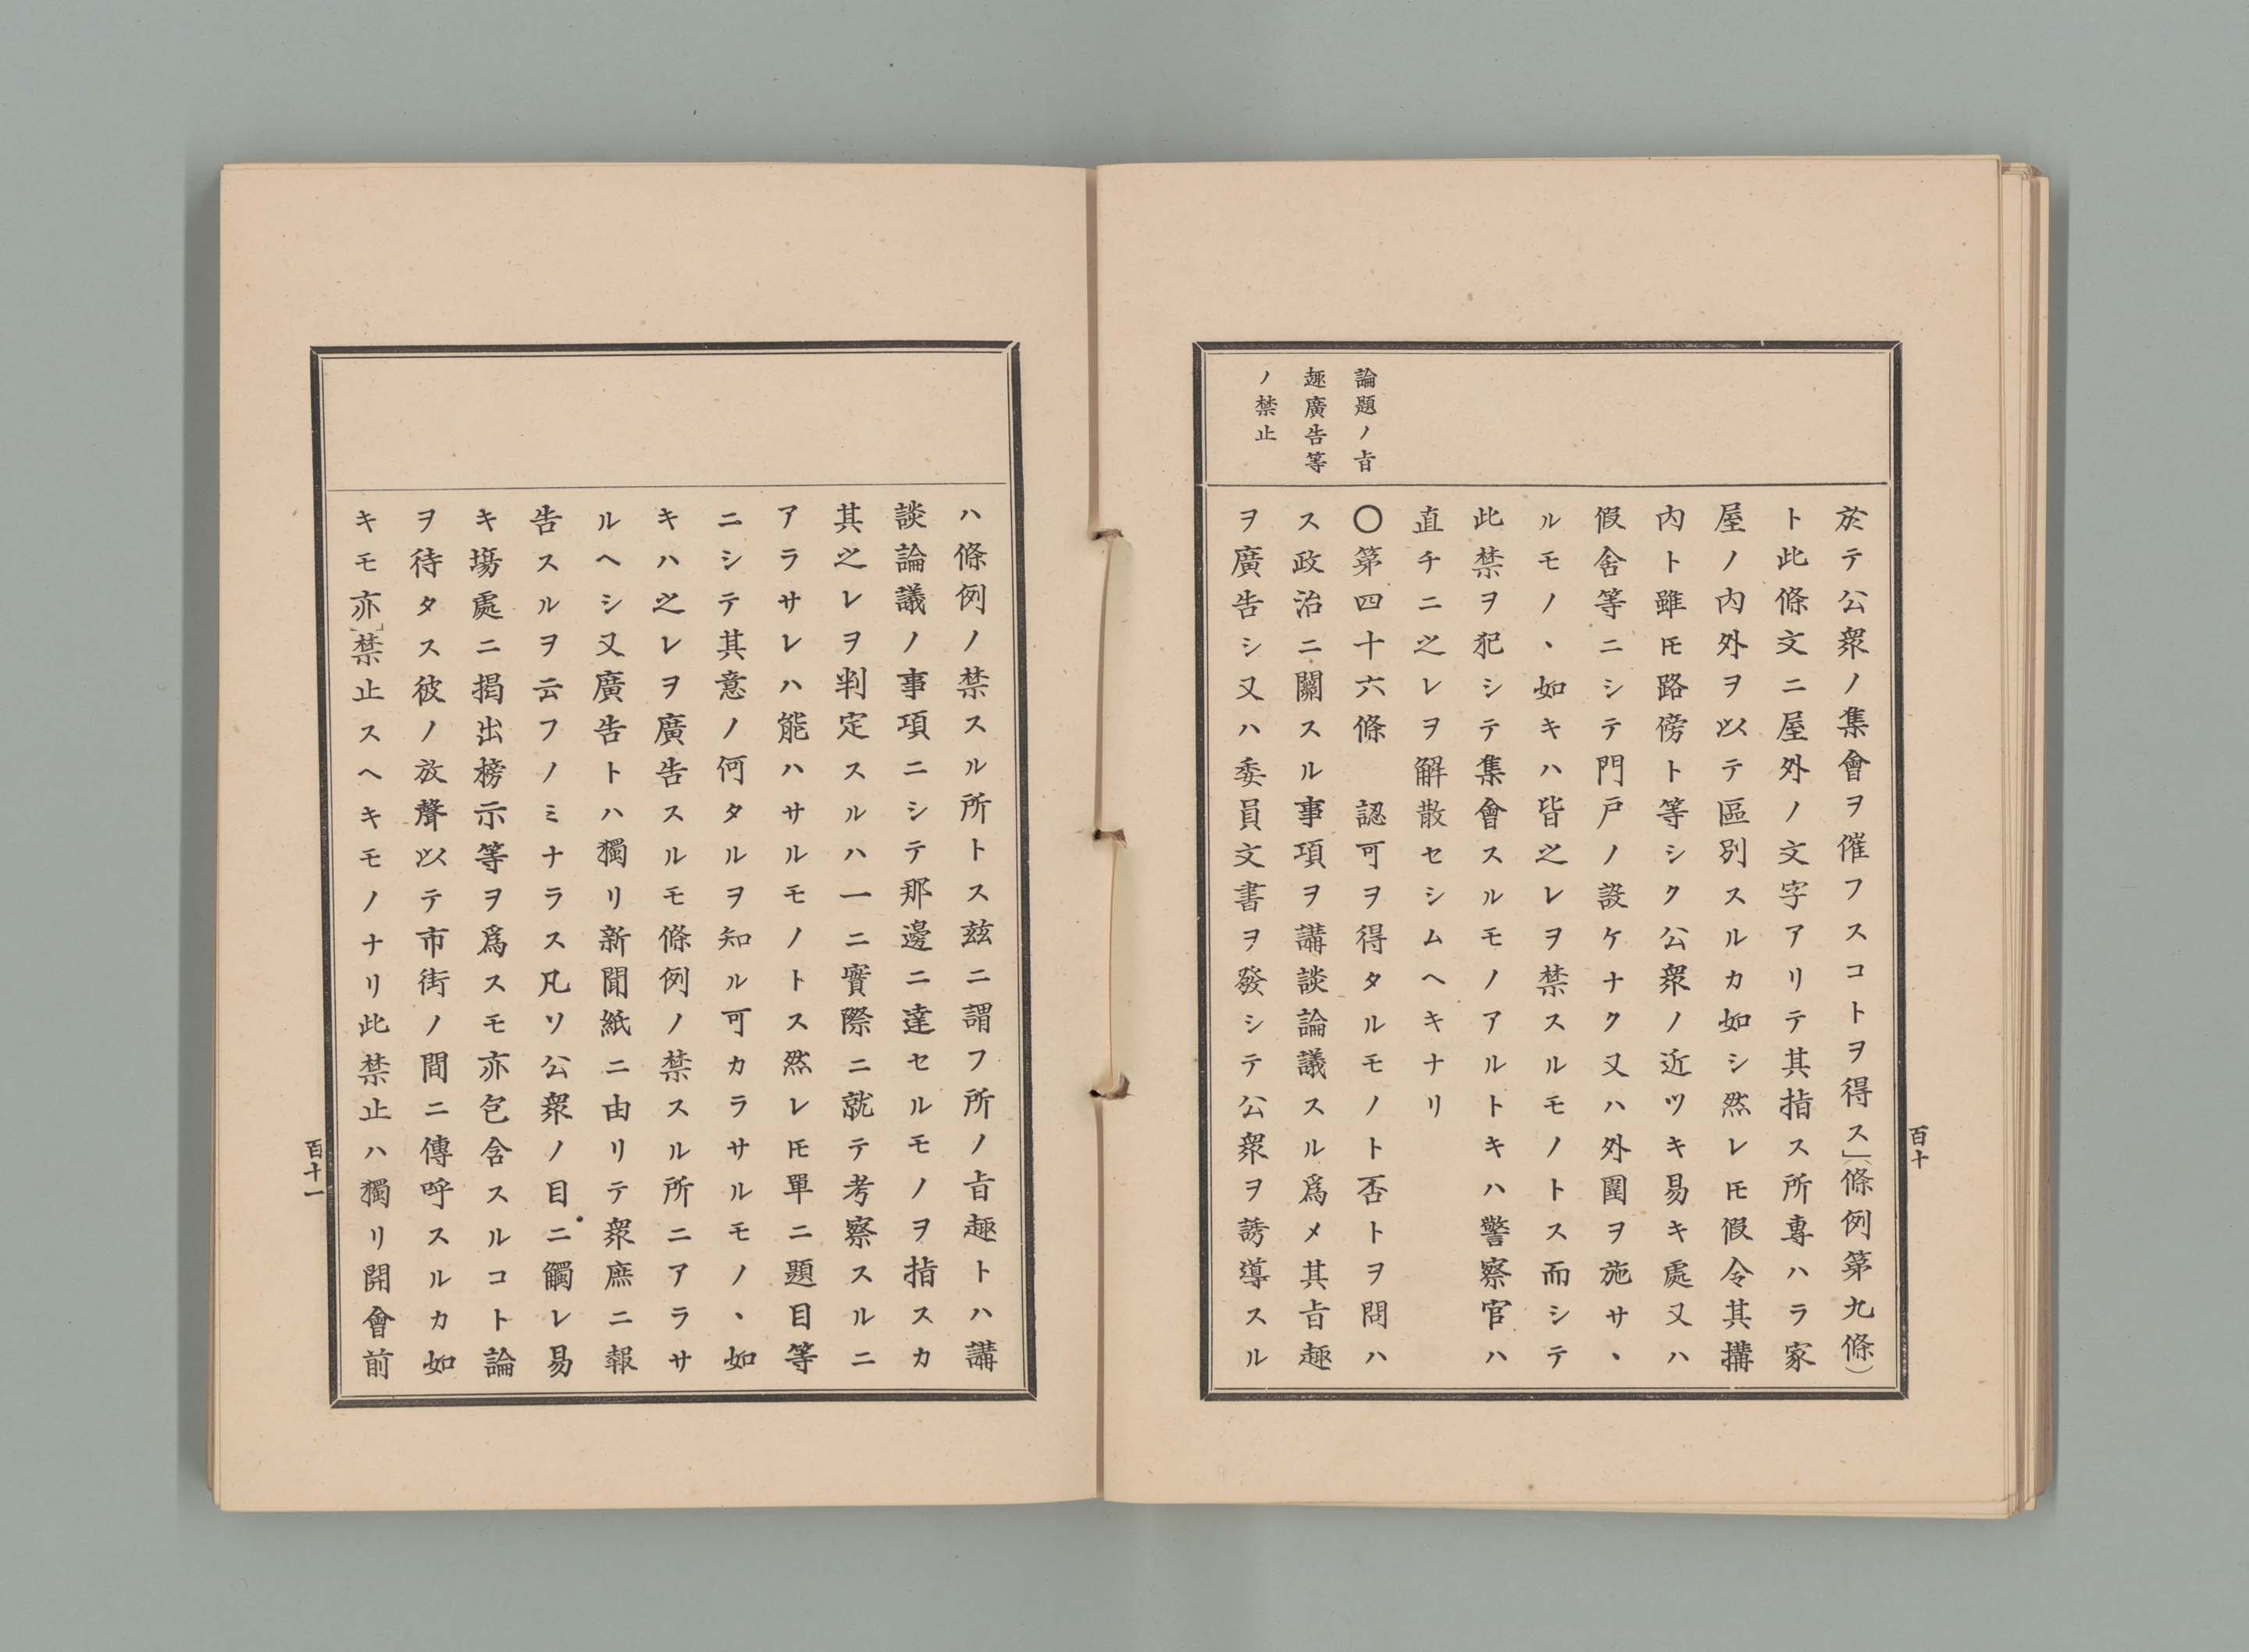 論題ノ旨
趣廣告等
ノ禁止
於テ公衆ノ集會ヲ催フスコトヲ得ス」(條例第九條)
ト此條文ニ屋外ノ文字アリテ其指ス所專ハラ家
屋ノ内外ヲ以テ區別スルカ如シ然レ𪜈假令其搆
内ト雖𪜈路傍ト等シク公衆ノ近ツキ易キ處又ハ
假舍等ニシテ門戸ノ設ケナク又ハ外圍ヲ施サヽ
ルモノヽ如キハ皆之レヲ禁スルモノトス而シテ
此禁ヲ犯シテ集會スルモノアルトキハ警察官ハ
直チニ之レヲ解散セシムヘキナリ
〇第四十六條　認可ヲ得タルモノト否トヲ問ハ
ス政治ニ關スル事項ヲ講談論議スル爲メ其旨趣
ヲ廣告シ又ハ委員文書ヲ發シテ公衆ヲ誘導スル
百十
ハ條例ノ禁スル所トス茲ニ謂フ所ノ旨趣トハ講
談論議ノ事項ニシテ那邊ニ達セルモノヲ指スカ
其之レヲ判定スルハ一ニ實際ニ就テ考察スルニ
アラサレハ能ハサルモノトス然レ𪜈單ニ題目等
ニシテ其意ノ何タルヲ知ル可カラサルモノヽ如
キハ之レヲ廣告スルモ條例ノ禁スル所ニアラサ
ルヘシ又廣告トハ獨リ新聞紙ニ由リテ衆庶ニ報
告スルヲ云フノミナラス凡ソ公衆ノ目ニ觸レ易
キ塲處ニ揭出榜示等ヲ爲スモ亦包含スルコト論
ヲ待タス彼ノ放聲以テ市街ノ間ニ傳呼スルカ如
キモ亦禁止スヘキモノナリ此禁止ハ獨リ開會前
百十一